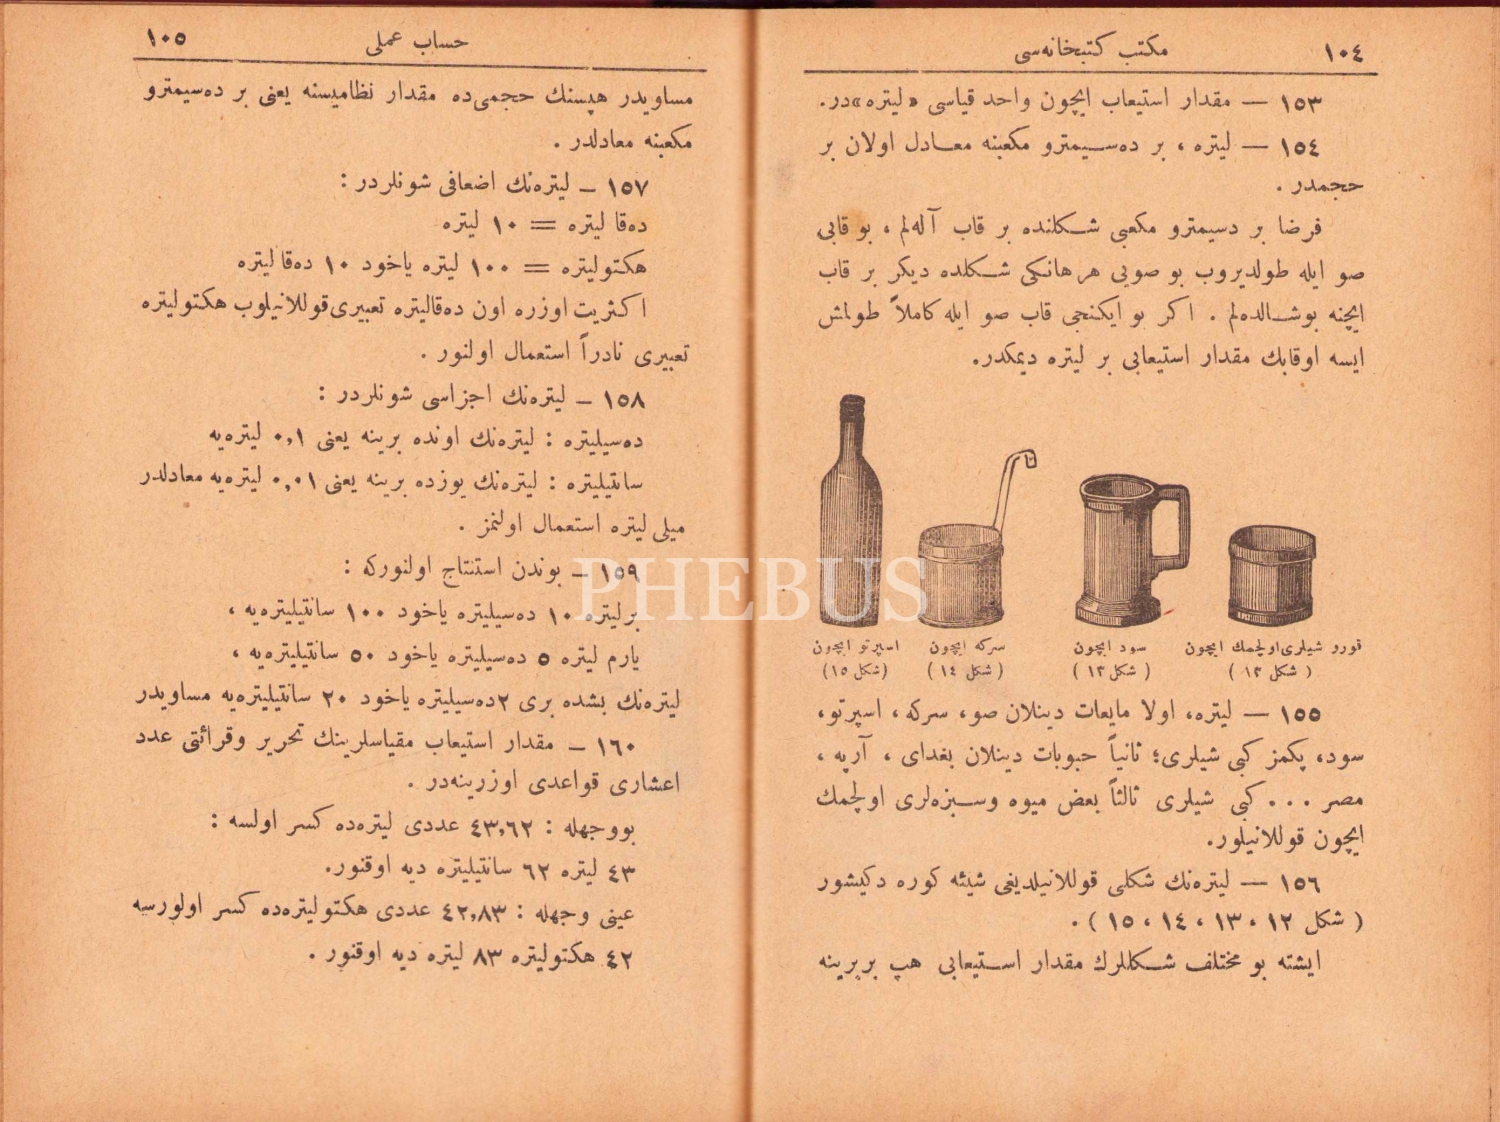 ١٠٤ مكتب كتبخانه‌سی
١٥٣ — مقدار استیعاب ایچون واحد قیاسی «لیتره»در.
١٥٤ — لیتره ، بر ده‌سیمترو مكعبنه معادل اولان بر
حجمدر .
فرضا بر دسیمترو مكعبی شكلنده بر قاب آله‌لم ، بو قابی
صو ایله طولدیروب بو صویی هر هانكی شكلده دیكر بر قاب
ایچنه بوشالده‌لم . اكر بو ایكنجی قاب صو ایله كاملاً طولمش
ایسه اوقابك مقدار استیعابی بر لیتره دیمكدر.
قورو شیلری اولچمك ایچون
( شكل ١٢ )
سود ایچون
( شكل ١٣ )
سركه ایچون
( شكل ١٤ )
اسپرتو ایچون
(شكل ١٥)
١٥٥ — لیتره، اولا مایعات دینلان صو، سركه، اسپرتو،
سود، پكمز كبی شیلری؛ ثانیاً حبوبات دینلان بغدای ، آرپه ،
مصر ... كبی شیلری ثالثاً بعض میوه وسبزه‌لری اولچمك
ایچون قوللانیلور.
١٥٦ — لیتره‌نك شكلی قوللانیلدیغی شیئه كوره دكیشور
( شكل ١٢ ، ١٣ ، ١٤ ، ١٥ ) .
ایشته بو مختلف شكللرك مقدار استیعابی هپ بربرینه
حساب عملی ١٠٥
مساویدر هپسنك حجمی‌ده مقدار نظامیسنه یعنی بر ده‌سیمترو
مكعبنه معادلدر .
١٥٧ — لیتره‌نك اضعافی شونلردر :
ده‌قا لیتره = ١٠ لیتره
هكتولیتره = ١٠٠ لیتره یاخود ١٠ ده‌قا لیتره
اكثریت اوزره اون ده‌قالیتره تعبیری قوللانیلوب هكتولیتره
تعبیری نادراً استعمال اولنور .
١٥٨ — لیتره‌نك اجزاسی شونلردر :
ده‌سیلیتره : لیتره‌نك اونده برینه یعنی ٠٫١ لیتره‌یه
سانتیلیتره : لیتره‌نك یوزده برینه یعنی ٠٫٠١ لیتره‌یه معادلدر
میلی لیتره استعمال اولنمز .
١٥٩ — بوندن استنتاج اولنوركه :
بر لیتره ١٠ ده‌سیلیتره یاخود ١٠٠ سانتیلیتره‌یه ،
یارم لیتره ٥ ده‌سیلیتره یاخود ٥٠ سانتیلیتره‌یه ،
لیتره‌نك بشده بری ٢ ده‌سیلیتره یاخود ٢٠ سانتیلیتره‌یه مساویدر
١٦٠ — مقدار استیعاب مقیاسلرینك تحریر وقرائتی عدد
اعشاری قواعدی اوزرینه‌در .
بووجهله : ٤٣٫٦٢ عددی لیتره‌ده كسر اولسه :
٤٣ لیتره ٦٢ سانتیلیتره دیه اوقنور.
عینی وجهله : ٤٢٫٨٣ عددی هكتولیتره‌ده كسر اولورسه
٤٢ هكتولیتره ٨٣ لیتره دیه اوقنور .
PHEBUS